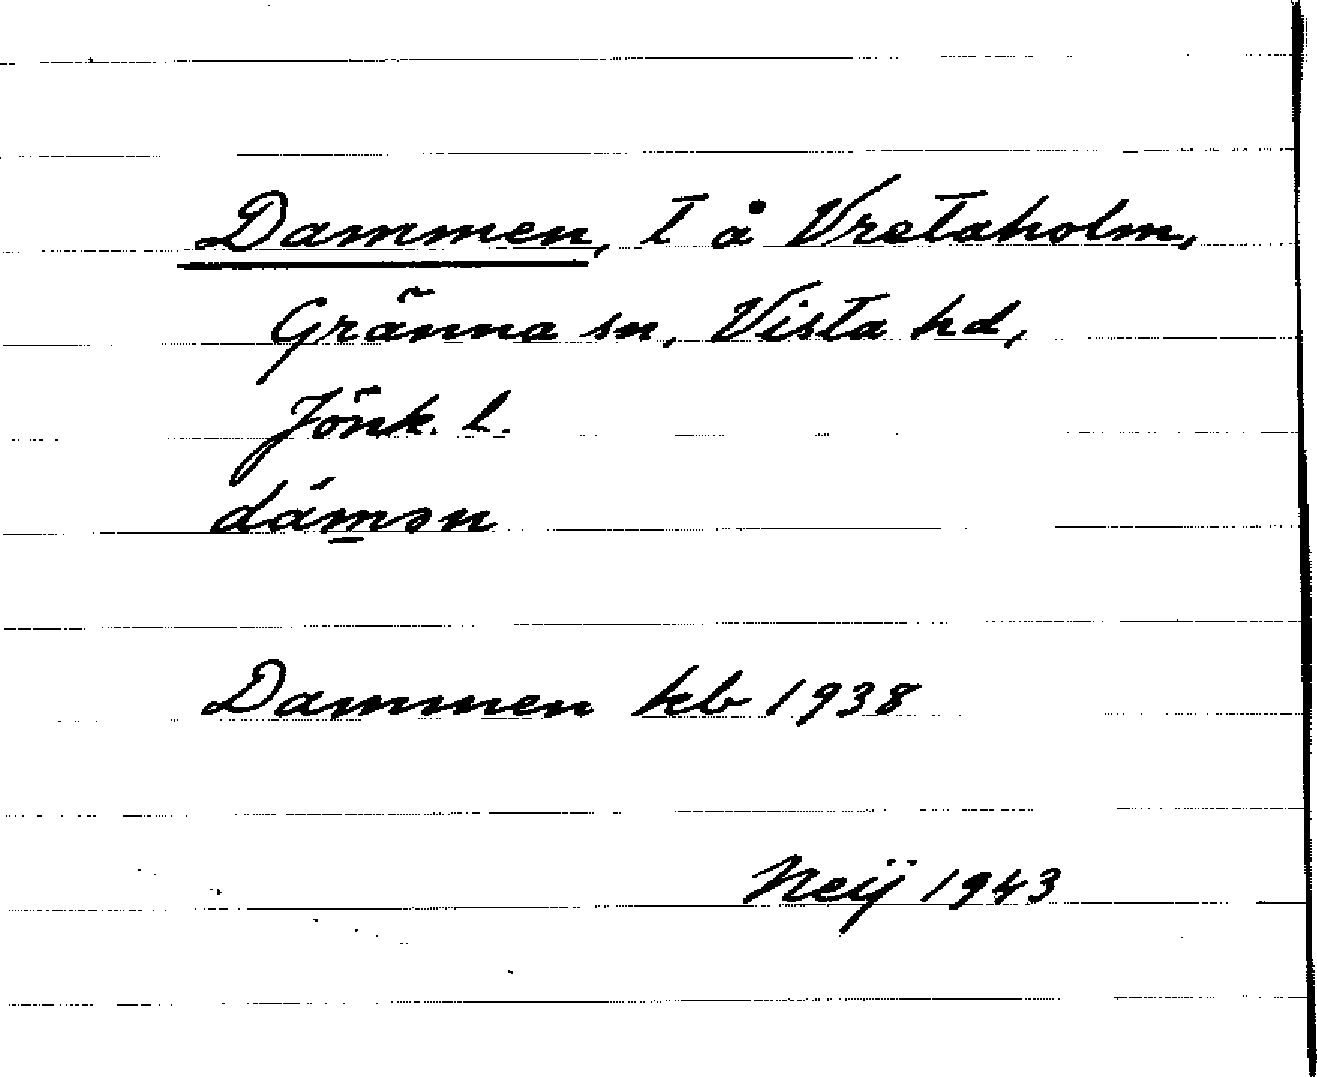 Dammen, t å Vretaholm,
Gränna sn, Vista hd,
Jönk. l.
dám̲ən
Dammen kb 1938
Neij 1943